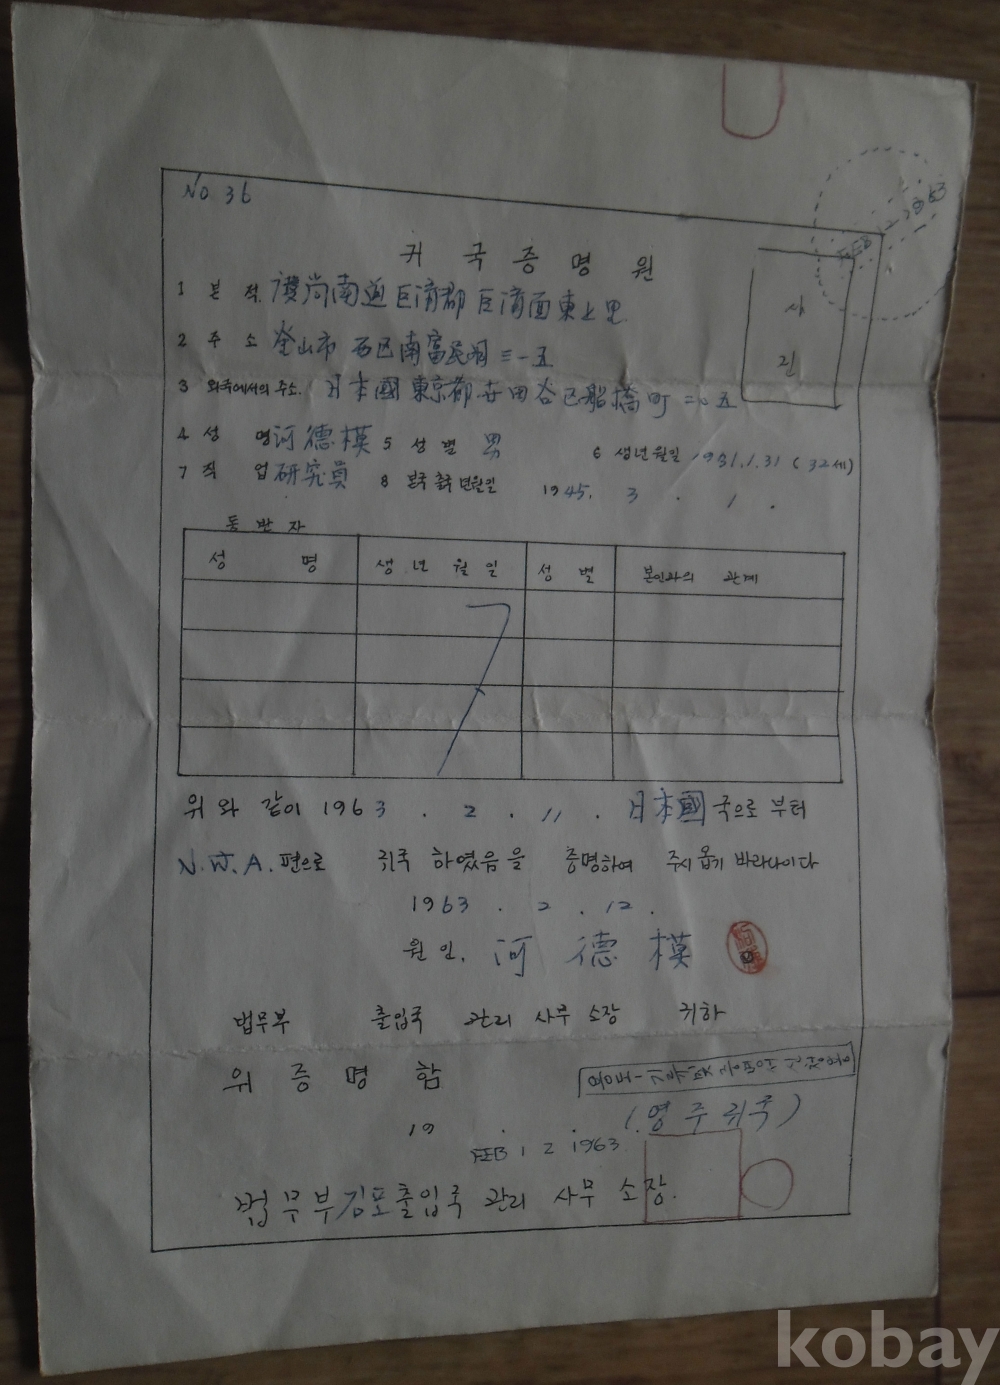 NO 36
귀국증명원
사진
1 본적. 慶尚南道 巨濟郡 巨濟面 東上里
2 주소 釜山市 西区 南富民洞 三一五
3 외국에서의 주소. 日本國 東京都 世田谷区 船橋町
4 성명 河德模 5 성별 男 6 생년월일 1931.1.31 (32세)
7 직업 研究員 8 본국 출국 년월일 1945. 3 . 1 .
동반자
성명 생년월일 성별 본인과의 관계
위와 같이 1963 . 2 . 11 . 日本國 국으로 부터
N.W.A. 편으로 귀국 하였음을 증명하여 주시옵기 바라나이다
1963 . 2 . 12 .
원인. 河 德 模
법무부 출입국 관리 사무 소장 귀하
위 증명함
(영주귀국)
19 . . .
FEB 1 2 1963
법무부 김포출입국 관리 사무 소장.
kobay